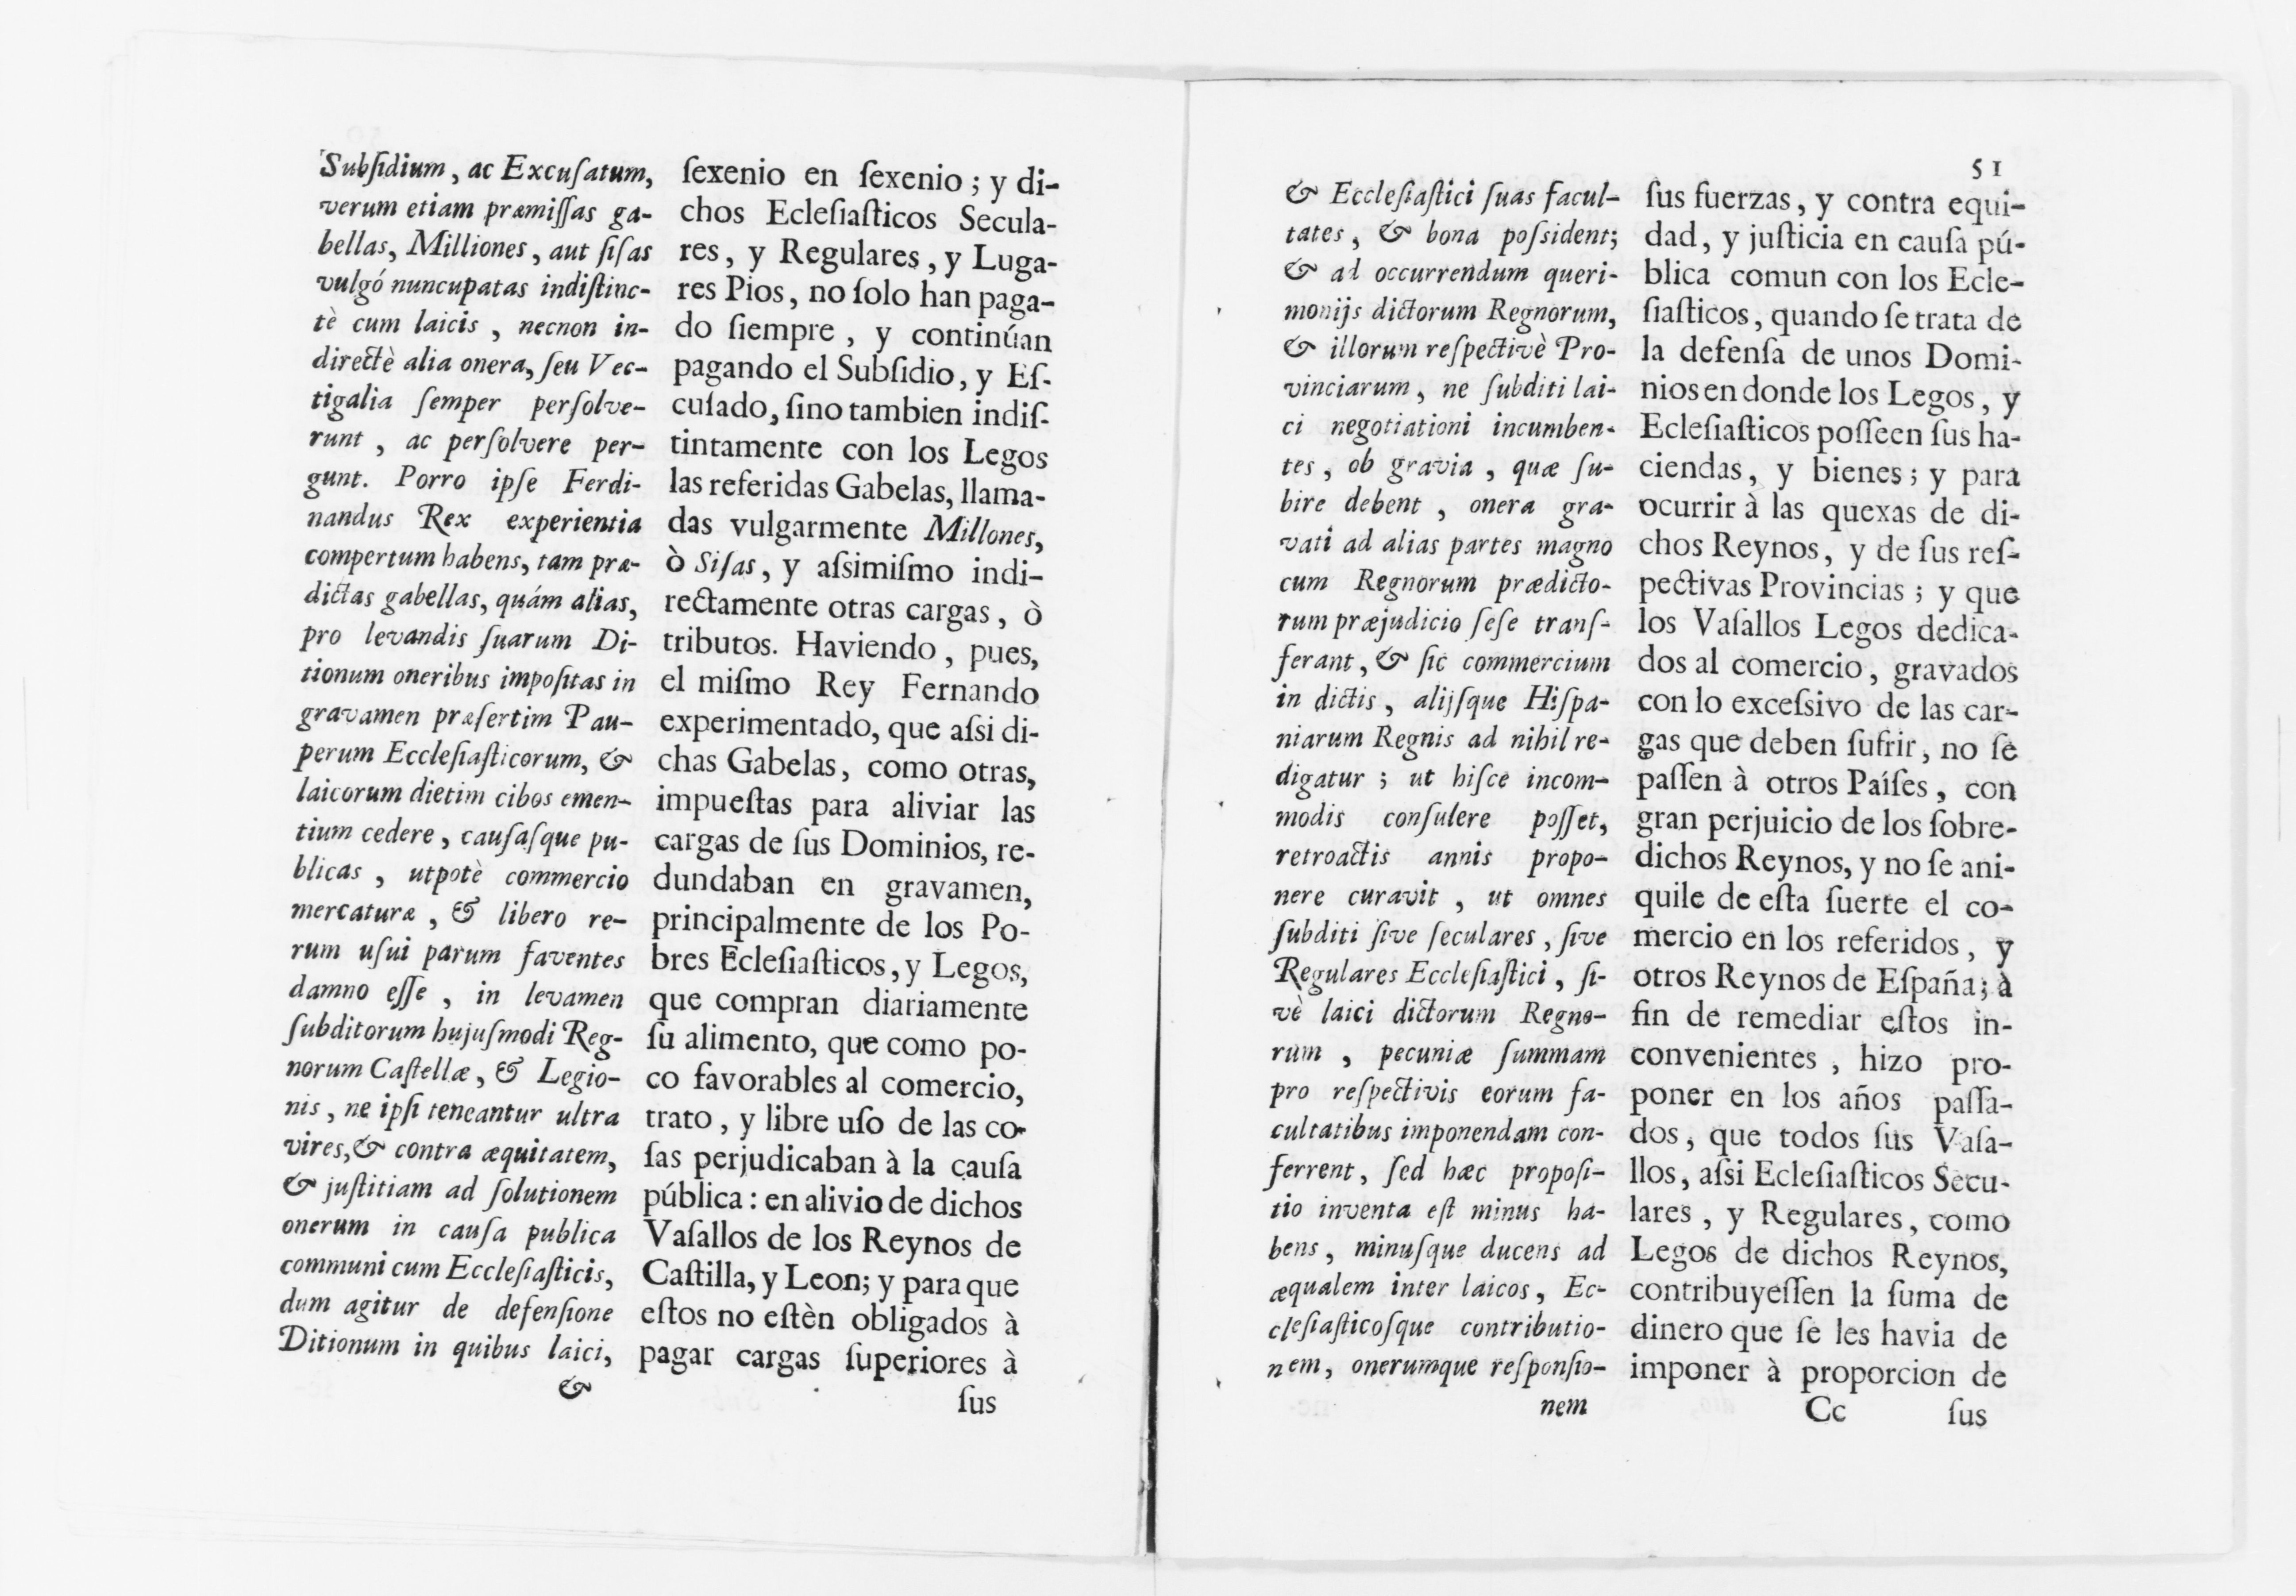 Subſidium, ac Excuſatum,
verum etiam præmiſſas ga-
bellas, Milliones, aut ſiſas
vulgó nuncupatas indiſtinc-
tè cum laicis, necnon in-
directè alia onera, ſeu Vec-
tigalia ſemper perſolve-
runt, ac perſolvere per-
gunt. Porro ipſe Ferdi-
nandus Rex experientia
compertum habens, tam præ-
dictas gabellas, quám alias,
pro levandis ſuarum Di-
tionum oneribus impoſitas in
gravamen præſertim Pau-
perum Eccleſiaſticorum, &
laicorum dietim cibos emen-
tium cedere, cauſaſque pu-
blicas, utpotè commercio
mercaturæ, & libero re-
rum uſui parum faventes
damno eſſe, in levamen
ſubditorum hujuſmodi Reg-
norum Caſtellæ, & Legio-
nis, ne ipſi teneantur ultra
vires, & contra æquitatem,
& juſtitiam ad ſolutionem
onerum in cauſa publica
communi cum Eccleſiaſticis,
dum agitur de defenſione
Ditionum in quibus laici,
&
ſexenio en ſexenio; y di-
chos Ecleſiaſticos Secula-
res, y Regulares, y Luga-
res Pios, no ſolo han paga-
do ſiempre, y continúan
pagando el Subſidio, y Eſ-
cuſado, ſino tambien indiſ-
tintamente con los Legos
las referidas Gabelas, llama-
das vulgarmente Millones,
ò Siſas, y aſsimiſmo indi-
rectamente otras cargas, ò
tributos. Haviendo, pues,
el miſmo Rey Fernando
experimentado, que aſsi di-
chas Gabelas, como otras,
impueſtas para aliviar las
cargas de ſus Dominios, re-
dundaban en gravamen,
principalmente de los Po-
bres Ecleſiaſticos, y Legos,
que compran diariamente
ſu alimento, que como po-
co favorables al comercio,
trato, y libre uſo de las co-
ſas perjudicaban à la cauſa
pública: en alivio de dichos
Vaſallos de los Reynos de
Caſtilla, y Leon; y para que
eſtos no eſtèn obligados à
pagar cargas ſuperiores à
ſus
51
& Eccleſiaſtici ſuas facul-
tates, & bona poſsident;
& ad occurrendum queri-
monijs dictorum Regnorum,
& illorum reſpectivè Pro-
vinciarum, ne ſubditi lai-
ci negotiationi incumben-
tes, ob gravia, quæ ſu-
bire debent, onera gra-
vati ad alias partes magno
cum Regnorum prædicto-
rum præjudicio ſeſe tranſ-
ferant, & ſic commercium
in dictis, alijſque Hiſpa-
niarum Regnis ad nihil re-
digatur; ut hiſce incom-
modis conſulere poſſet,
retroactis annis propo-
nere curavit, ut omnes
ſubditi ſive ſeculares, ſive
Regulares Eccleſiaſtici, ſi-
vè laici dictorum Regno-
rum, pecuniæ ſummam
pro reſpectivis eorum fa-
cultatibus imponendam con-
ferrent, ſed hæc propoſi-
tio inventa eſt minus ha-
bens, minuſque ducens ad
æqualem inter laicos, Ec-
cleſiaſticoſque contributio-
nem, onerumque reſponſio-
nem
ſus fuerzas, y contra equi-
dad, y juſticia en cauſa pú-
blica comun con los Ecle-
ſiaſticos, quando ſe trata de
la defenſa de unos Domi-
nios en donde los Legos, y
Ecleſiaſticos poſſeen ſus ha-
ciendas, y bienes; y para
ocurrir à las quexas de di-
chos Reynos, y de ſus reſ-
pectivas Provincias; y que
los Vaſallos Legos dedica-
dos al comercio, gravados
con lo exceſsivo de las car-
gas que deben ſufrir, no ſe
paſſen à otros Paíſes, con
gran perjuicio de los ſobre-
dichos Reynos, y no ſe ani-
quile de eſta ſuerte el co-
mercio en los referidos, y
otros Reynos de Eſpaña; à
fin de remediar eſtos in-
convenientes, hizo pro-
poner en los años paſſa-
dos, que todos ſus Vaſa-
llos, aſsi Ecleſiaſticos Secu-
lares, y Regulares, como
Legos de dichos Reynos,
contribuyeſſen la ſuma de
dinero que ſe les havia de
imponer à proporcion de
Cc ſus